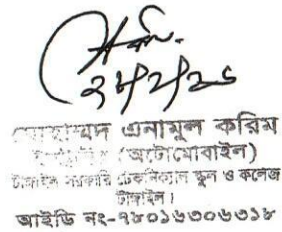 ২৮/২/২৬
মোহাম্মদ এনামুল করিম
(অটোমোবাইল)
টাঙ্গাইল সরকারি টেকনিক্যাল স্কুল ও কলেজ
টাঙ্গাইল।
আইডি নং-৭৮০১৬৩০৬৩১৮